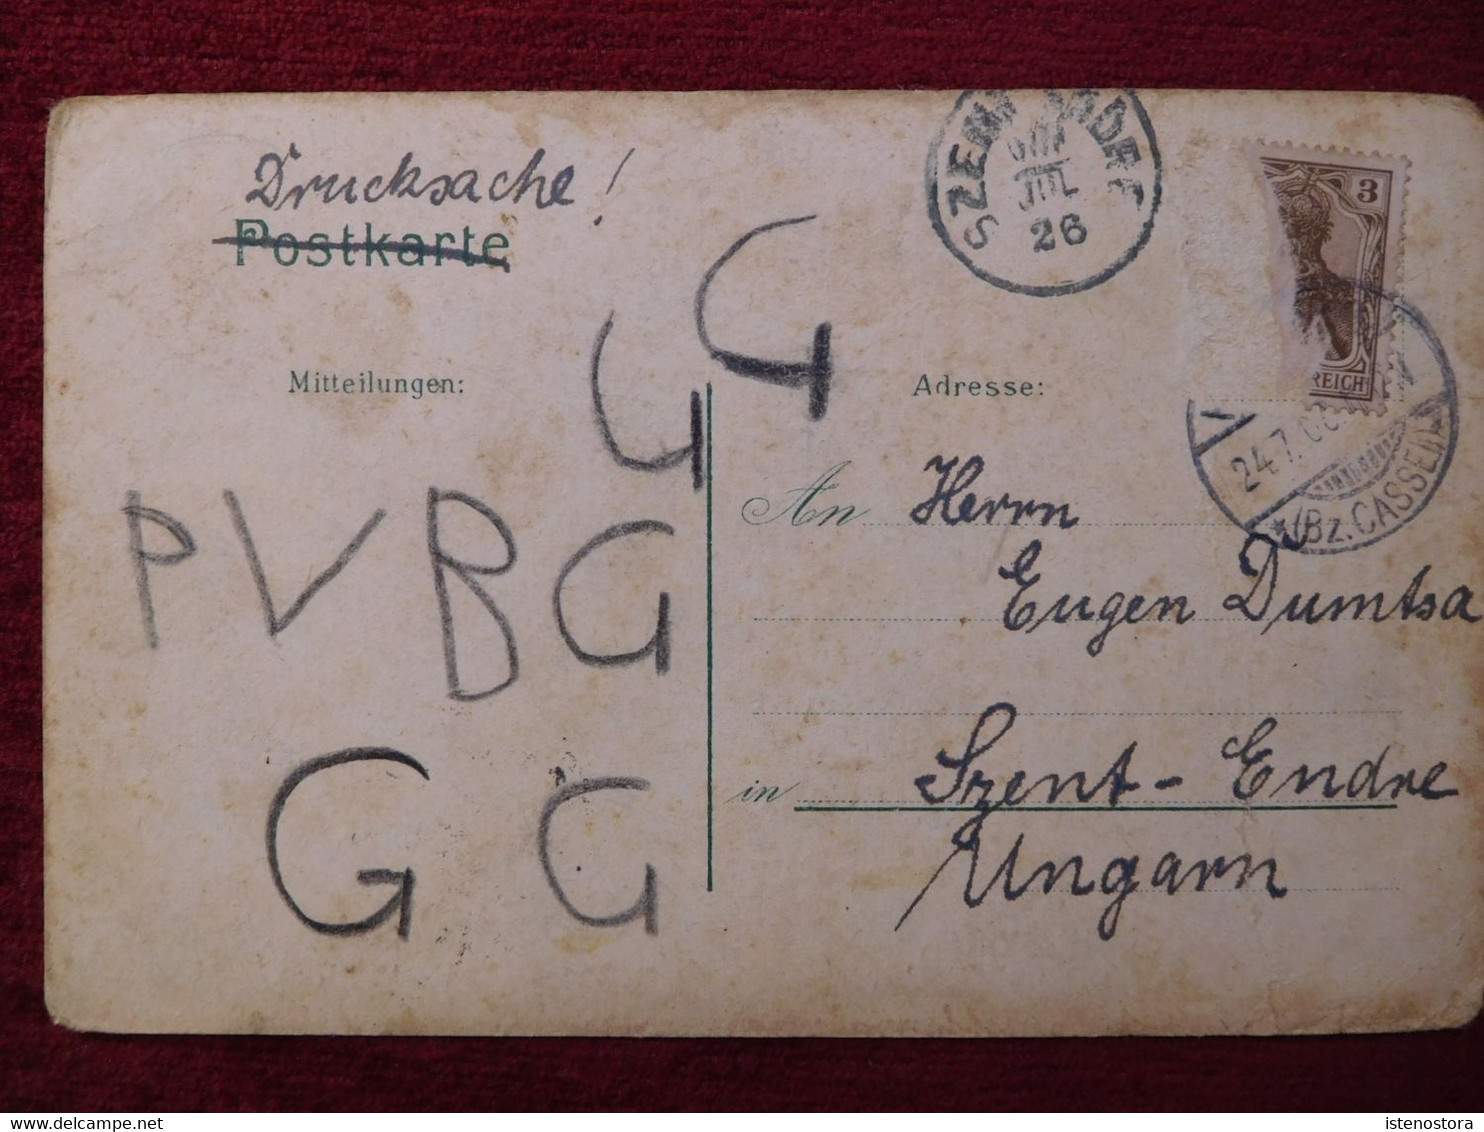 Drucksache!
Postkarte
SZENT ENDRE
JUL
26
3
REICH
24.7.08
* (Bz. CASSEL)
Mitteilungen:
Adresse:
G
G
P V B G
G G
An Herrn
Eugen Dumtsa
in Szent-Endre
Ungarn
www.delcampe.net
istenostora